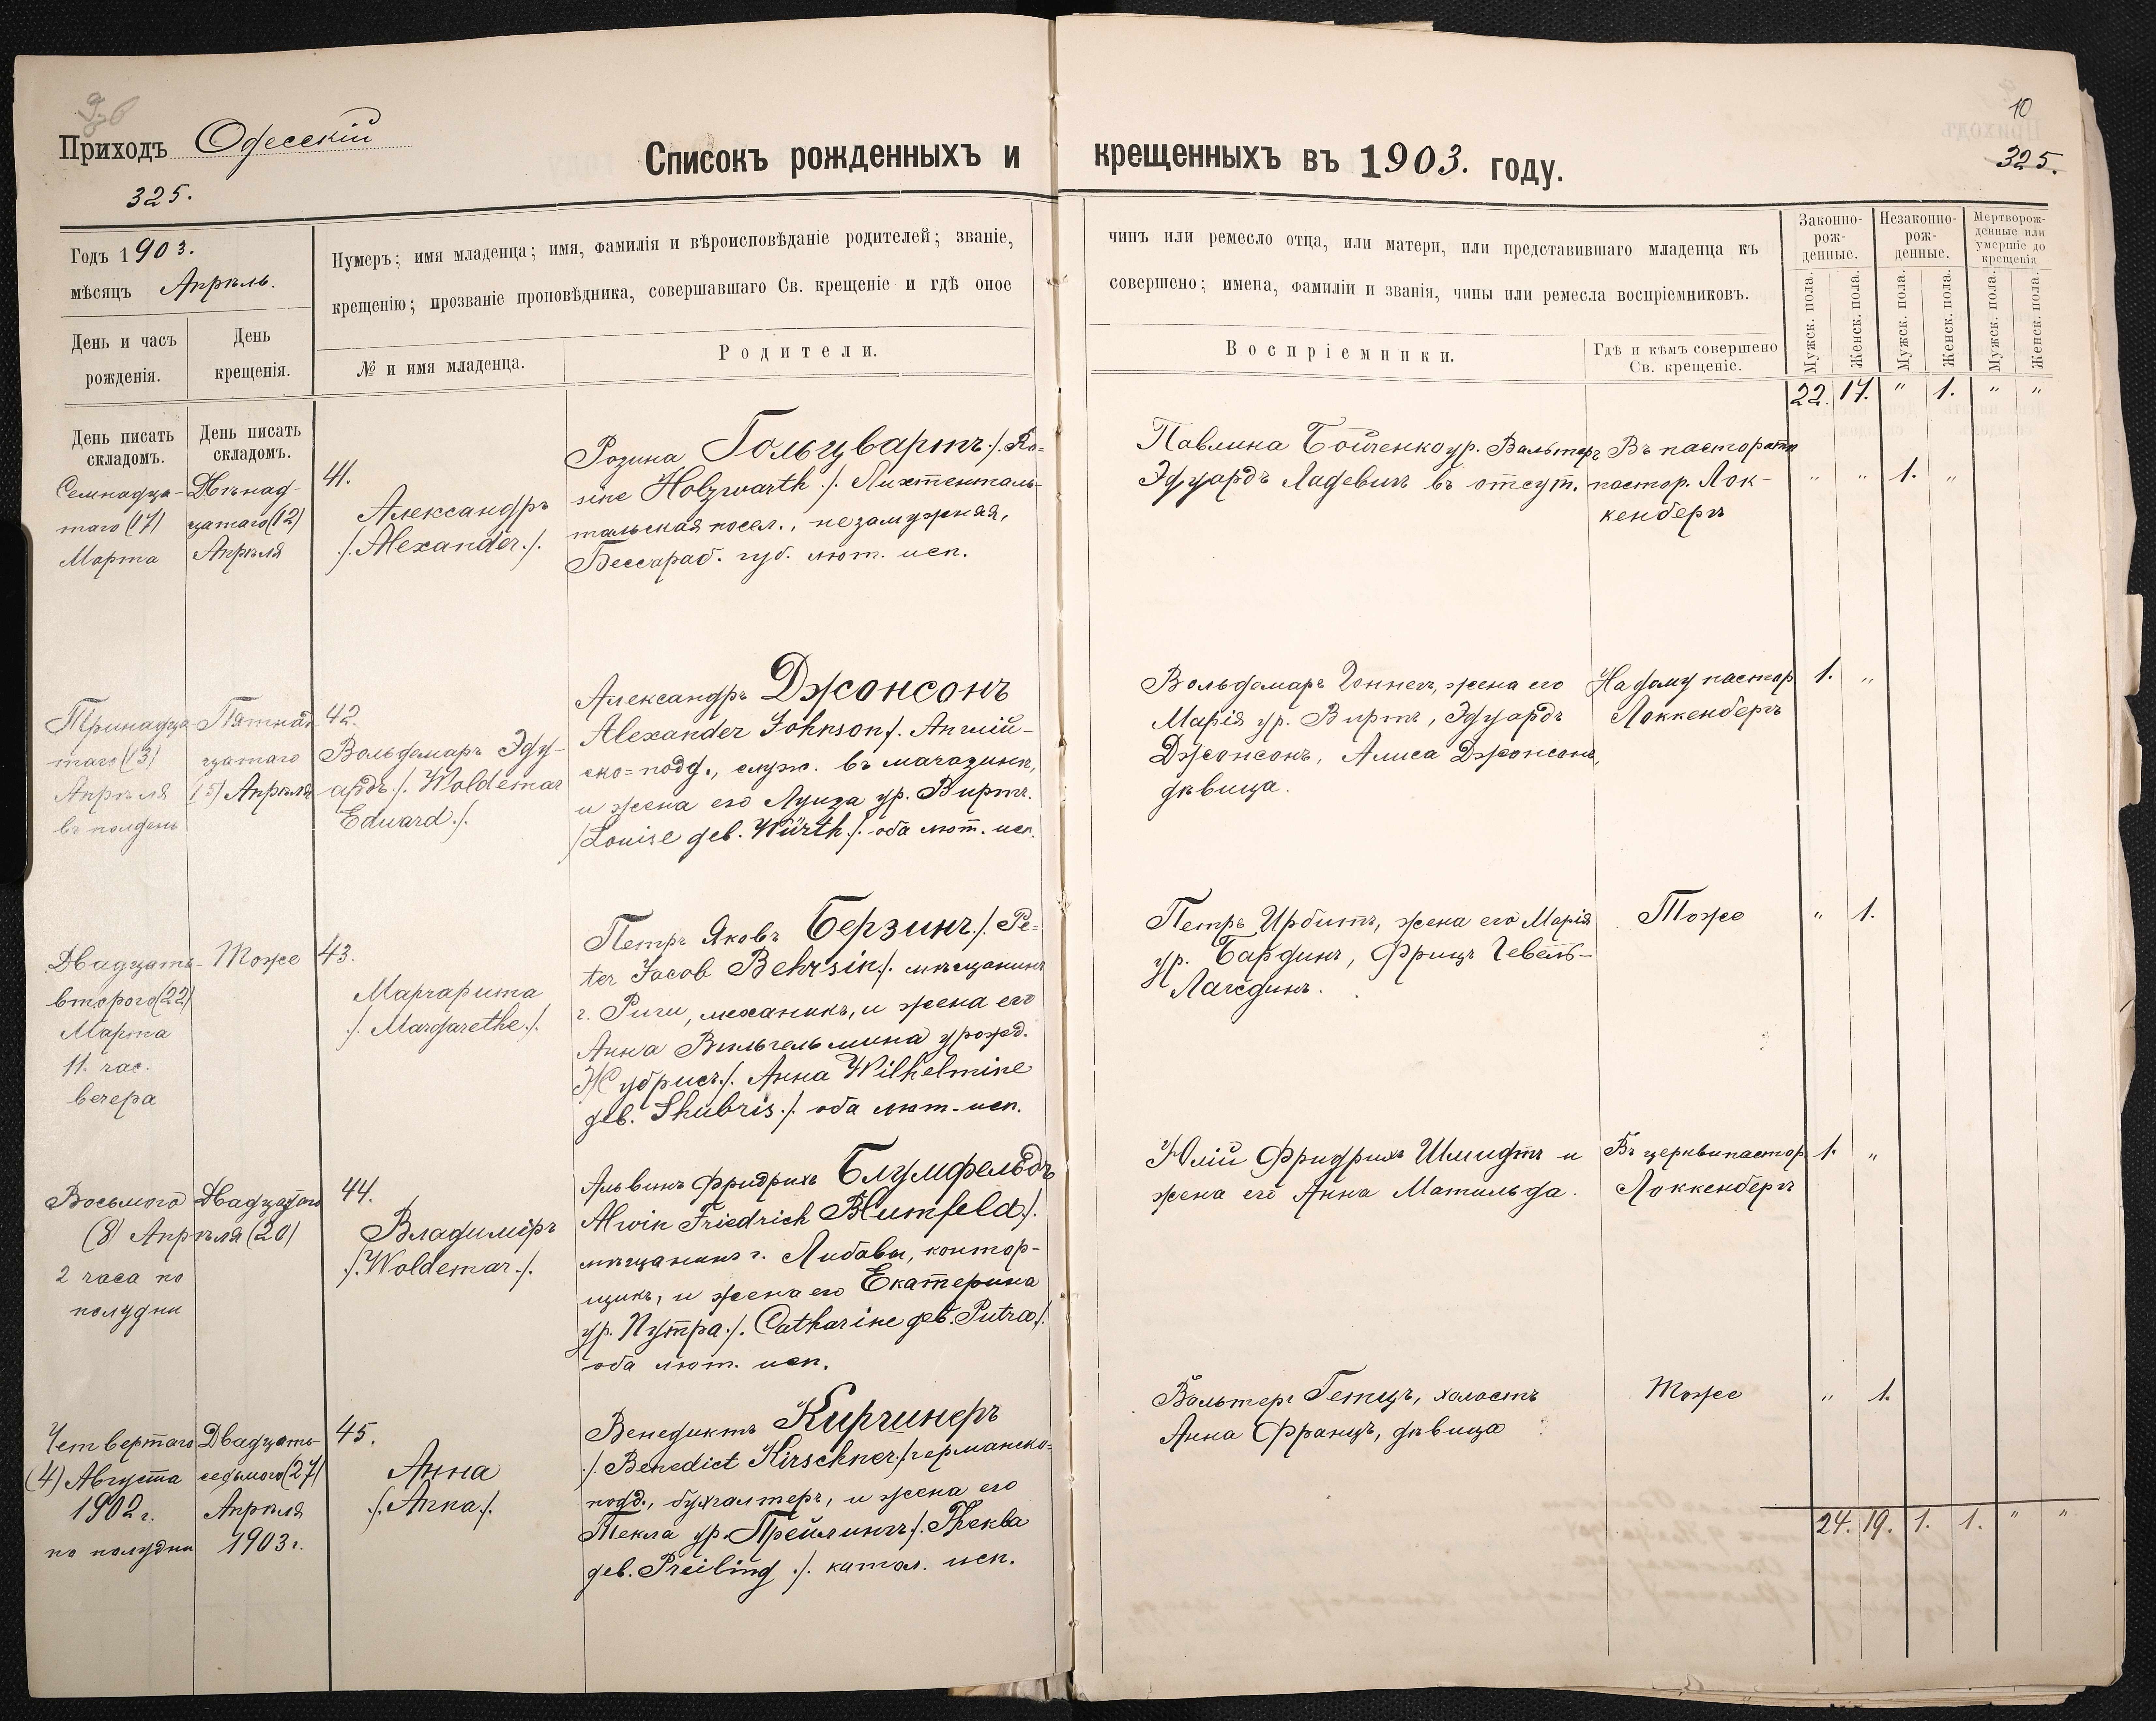 Приходъ Одесскій
325.
Списокъ рожденныхъ и крещенныхъ въ 1903. году.
10
325.
Годъ 1903.
мѣсяцъ Апрѣль.
День и часъ рожденія.
День крещенія.
Нумеръ; имя младенца; имя, фамилія и вѣроисповѣданіе родителей; званіе, чинъ или ремесло отца, или матери, или представившаго младенца къ
крещенію; прозваніе проповѣдника, совершавшаго Св. крещеніе и гдѣ оное совершено; имена, фамиліи и званія, чины или ремесла воспріемниковъ.
№ и имя младенца.
Родители.
Воспріемники.
Гдѣ и кѣмъ совершено
Св. крещеніе.
Законно-
рож-
денные.
Незаконно-
рож-
денные.
Мертворож-
денные или
умершіе до
крещенія
Мужск. пола.
Женск. пола.
Мужск. пола.
Женск. пола.
Мужск. пола.
Женск. пола.
22. 17. " 1. " "
День писать
складомъ.
День писать
складомъ.
Семнадца-
таго (17)
Марта
Двѣнад-
цатаго (12)
Апрѣля
41.
Александръ
/. Alexander ./.
Розина Гольцвартъ ./. Ro-
sine Holzwarth ./. Лихтенталь-
тальская посел., незамужняя,
Бессараб. губ. лют. исп.
Павлина Бойченко ур. Вальтеръ
Эдуардъ Ладевигъ въ отсут.
Въ пасторатѣ
пастор. Лок-
кенбергъ
" " 1. "
Тринадца-
таго (13)
Апрѣля
въ полдень
Пятнад-
цатаго
(15) Апрѣля
42.
Вольдемаръ Эду-
ардъ ./. Woldemar
Eduard ./.
Александръ Джонсонъ
Alexander Johnson ./. Англій-
ско-подд., служ. въ магазинѣ,
и жена его Луиза ур. Виртъ.
/Louise geb. Würth ./. оба лют. исп.
Вольдемаръ Гоннегъ, жена его
Марія ур. Виртъ, Эдуардъ
Джонсонъ, Алиса Джонсонъ,
дѣвица.
На дому пастор
Локкенбергъ
1. "
Двадцать-
второго (22)
Марта
11. час.
вечера
Тоже
43.
Маргарита
/. Margarethe ./.
Петръ Яковъ Берзинъ ./. Pe-
ter Jacob Behrsin ./. мѣщанинъ
г. Риги, механикъ, и жена его
Анна Вильгельмина урожд.
Жубрисъ ./. Анна Wilhelmine
geb. Shubris ./. оба лют. исп.
Петръ Ирбитъ, жена его Марія
ур. Бардинъ, Фрицъ Гевель-
Лагздинъ.
Тоже
" 1.
Восьмого
(8) Апрѣля
2 часа по
полудни
Двадцатаго
(20)
44.
Владимiръ
./. Woldemar ./.
Альвинъ Фридрихъ Блумфельдъ
Alwin Friedrich Blumfeld ./.
мѣщанинъ г. Либавы, контор-
щикъ, и жена его Екатерина
ур. Путра ./. Catharine geb. Putra ./.
оба лют. исп.
Юлій Фридрихъ Шмидтъ и
жена его Анна Матильда.
Въ церкви пастор
Локкенбергъ
1. "
Четвертаго
(4) Августа
1902 г.
по полудни
Двадцать-
седьмого (27)
Апрѣля
1903 г.
45.
Анна
/. Anna ./.
Венедиктъ Киршнеръ
./. Benedict Kirschner ./. германско-
подд., бухгалтеръ, и жена его
Текла ур. Прейлингъ ./. Thekla
geb. Preiling ./. катол. исп.
Вальтеръ Гетцъ, холостъ
Анна Францъ, дѣвица
Тоже
" 1.
24. 19. 1. 1. " "